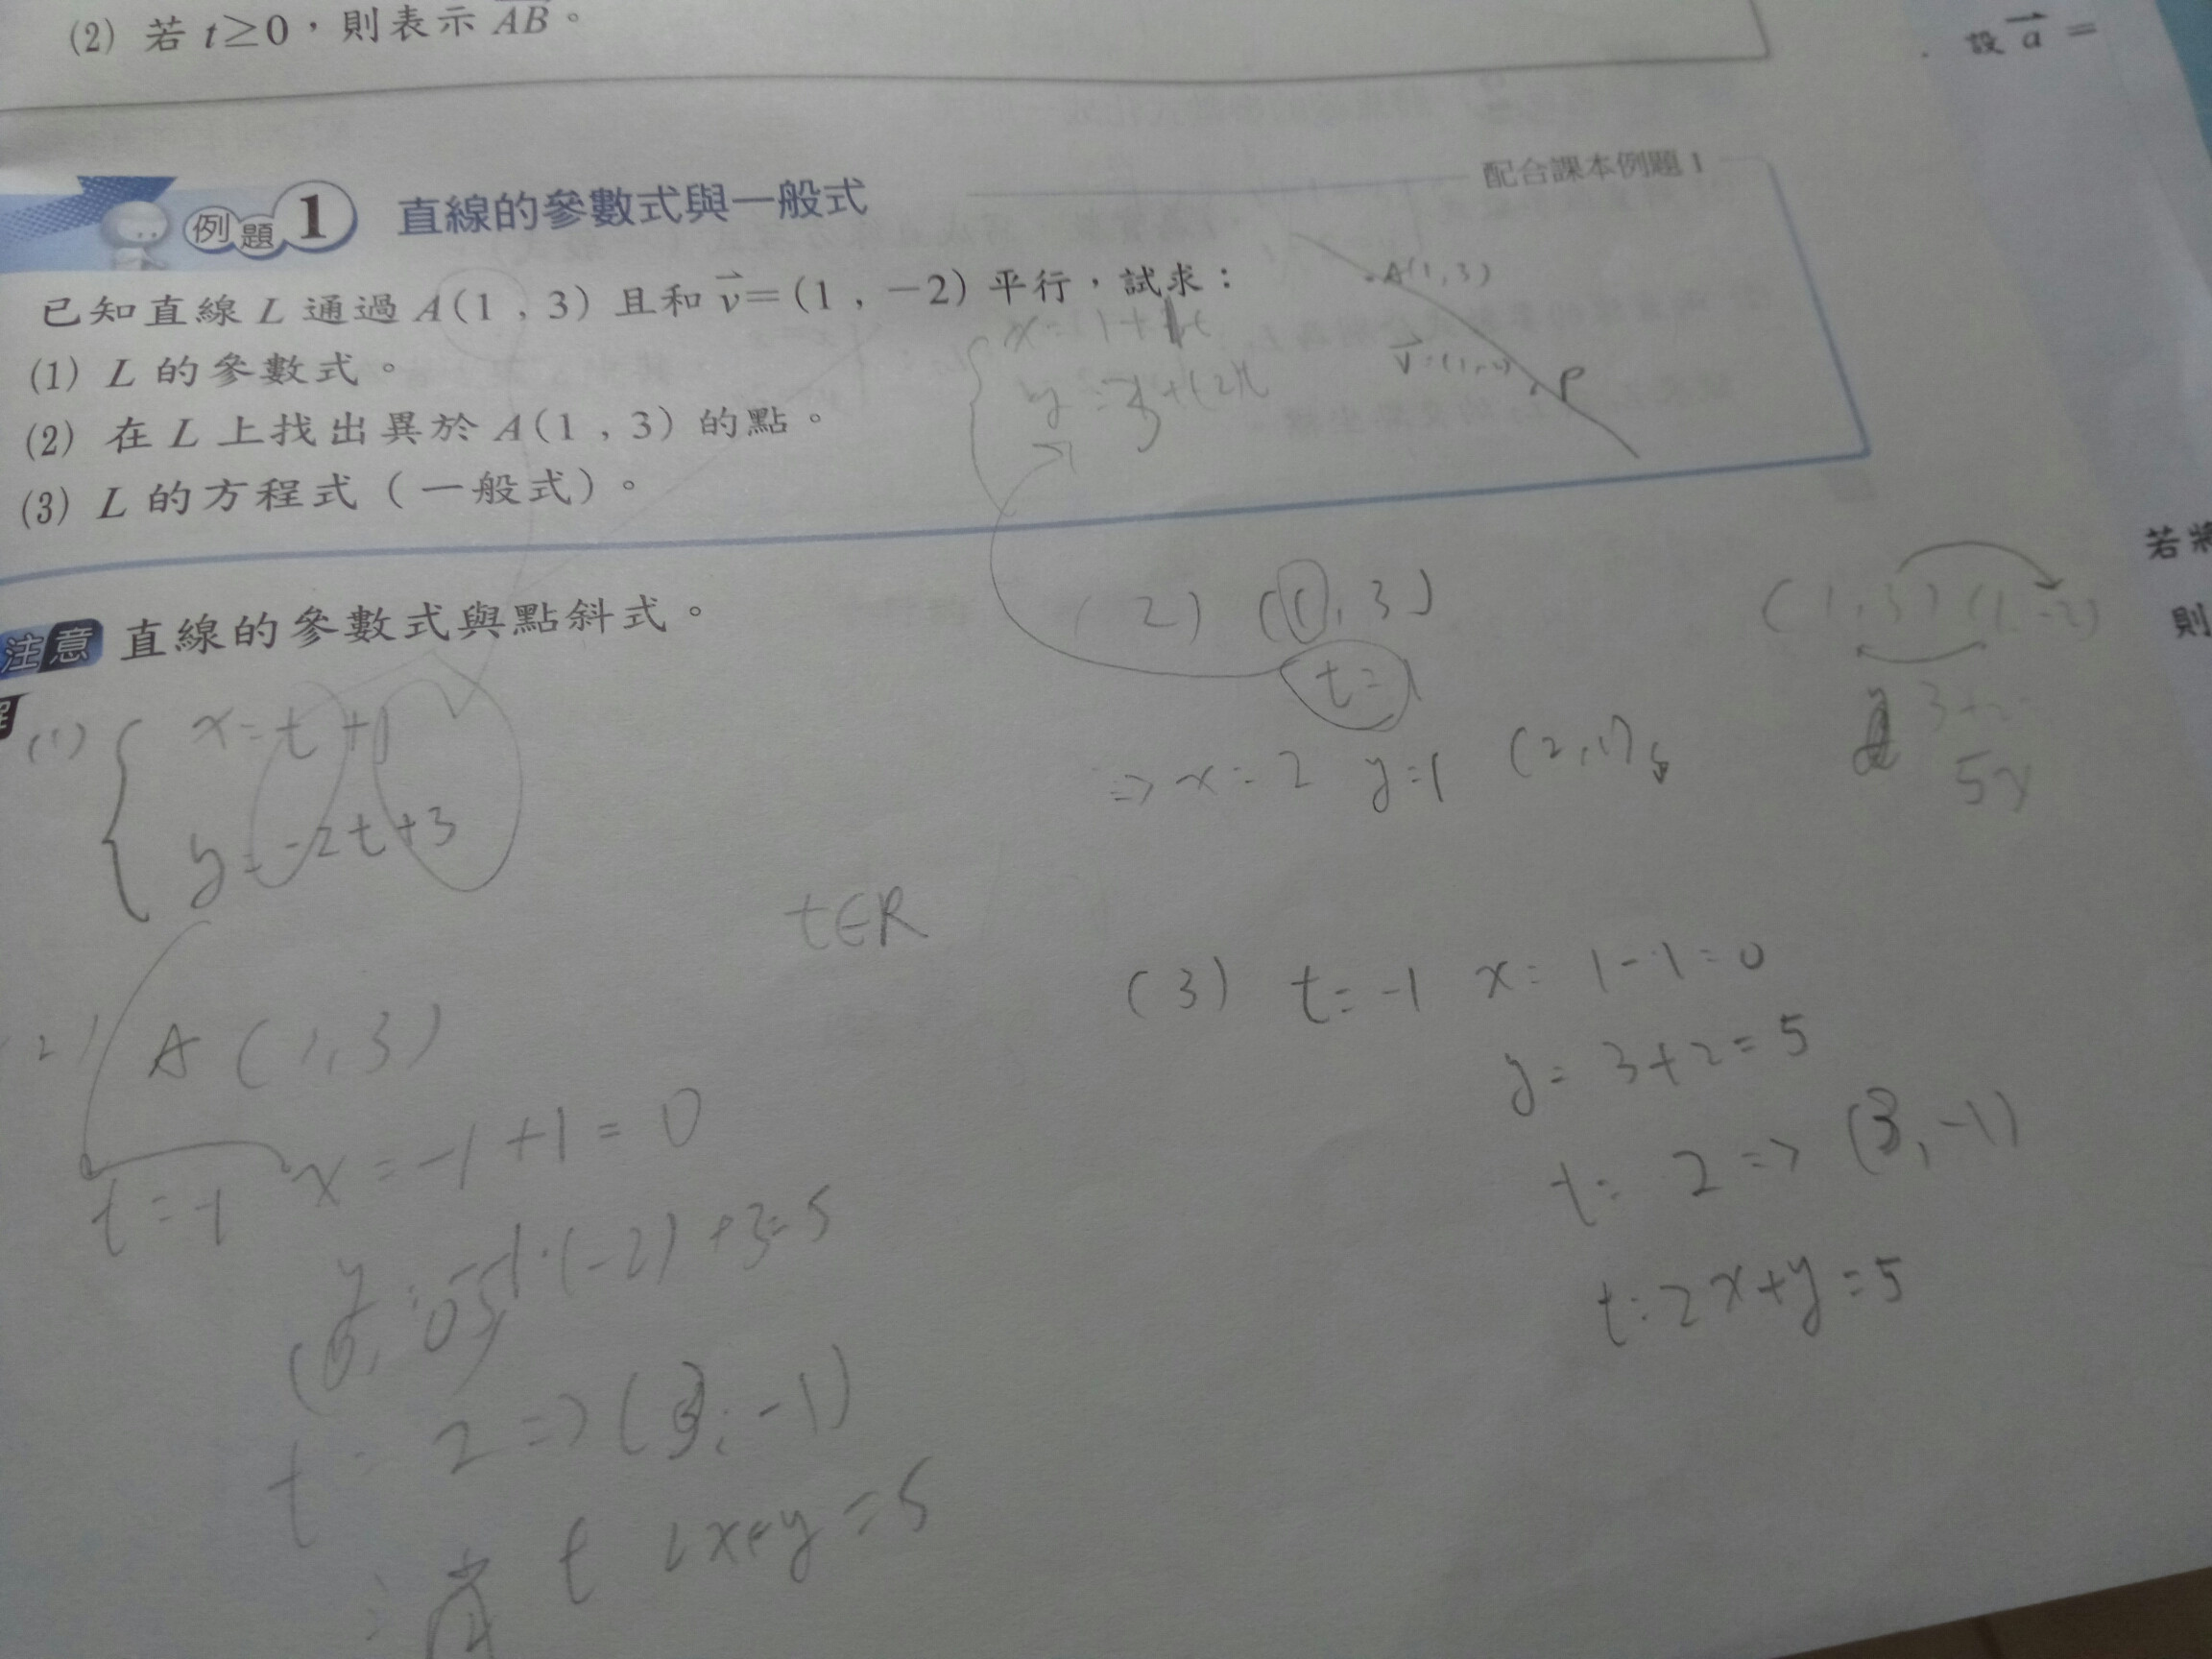 (2) 若 t≥0，則表示 AB。
設 a =
例題 1 直線的參數式與一般式
配合課本例題 1
已知直線 L 通過 A(1 , 3) 且和 v=(1 , −2) 平行，試求：
(1) L 的參數式。
(2) 在 L 上找出異於 A(1 , 3) 的點。
(3) L 的方程式（一般式）。
A(1,3)
P
若將
則
注意 直線的參數式與點斜式。
(1) x=t+1
y=-2t+3
t∈R
(2) A(1,3)
t=-1 x=-1+1=0
y=-1·(-2)+3=5
t=2=>(3,-1)
(2) (1,3)
t=1
=> x=2 y=1 (2,1)
(1,3) (1,-2)
5y
(3) t=-1 x=1-1=0
y=3+2=5
t=2=>(3,-1)
t:2x+y=5